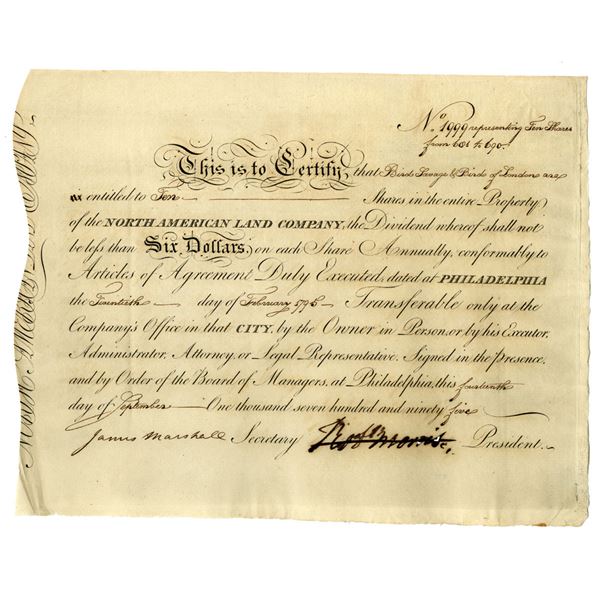 No. 1999 representing Ten Shares
from 681 to 690
This is to Certify, that Bird Savage & Bird of London are
is entitled to Ten Shares in the entire Property
of the NORTH AMERICAN LAND COMPANY, the Dividend whereof shall not
be less than Six Dollars, on each Share Annually, conformably to
Articles of Agreement Duly Executed, dated at PHILADELPHIA
the Twentieth day of February 1795 Transferable only at the
Company's Office in that CITY, by the Owner in Person, or by his Executor,
Administrator, Attorney, or Legal Representative. Signed in the Presence,
and by Order of the Board of Managers, at Philadelphia, this fourteenth
day of September One thousand seven hundred and ninety five
James Marshall Secretary Rob Morris President.